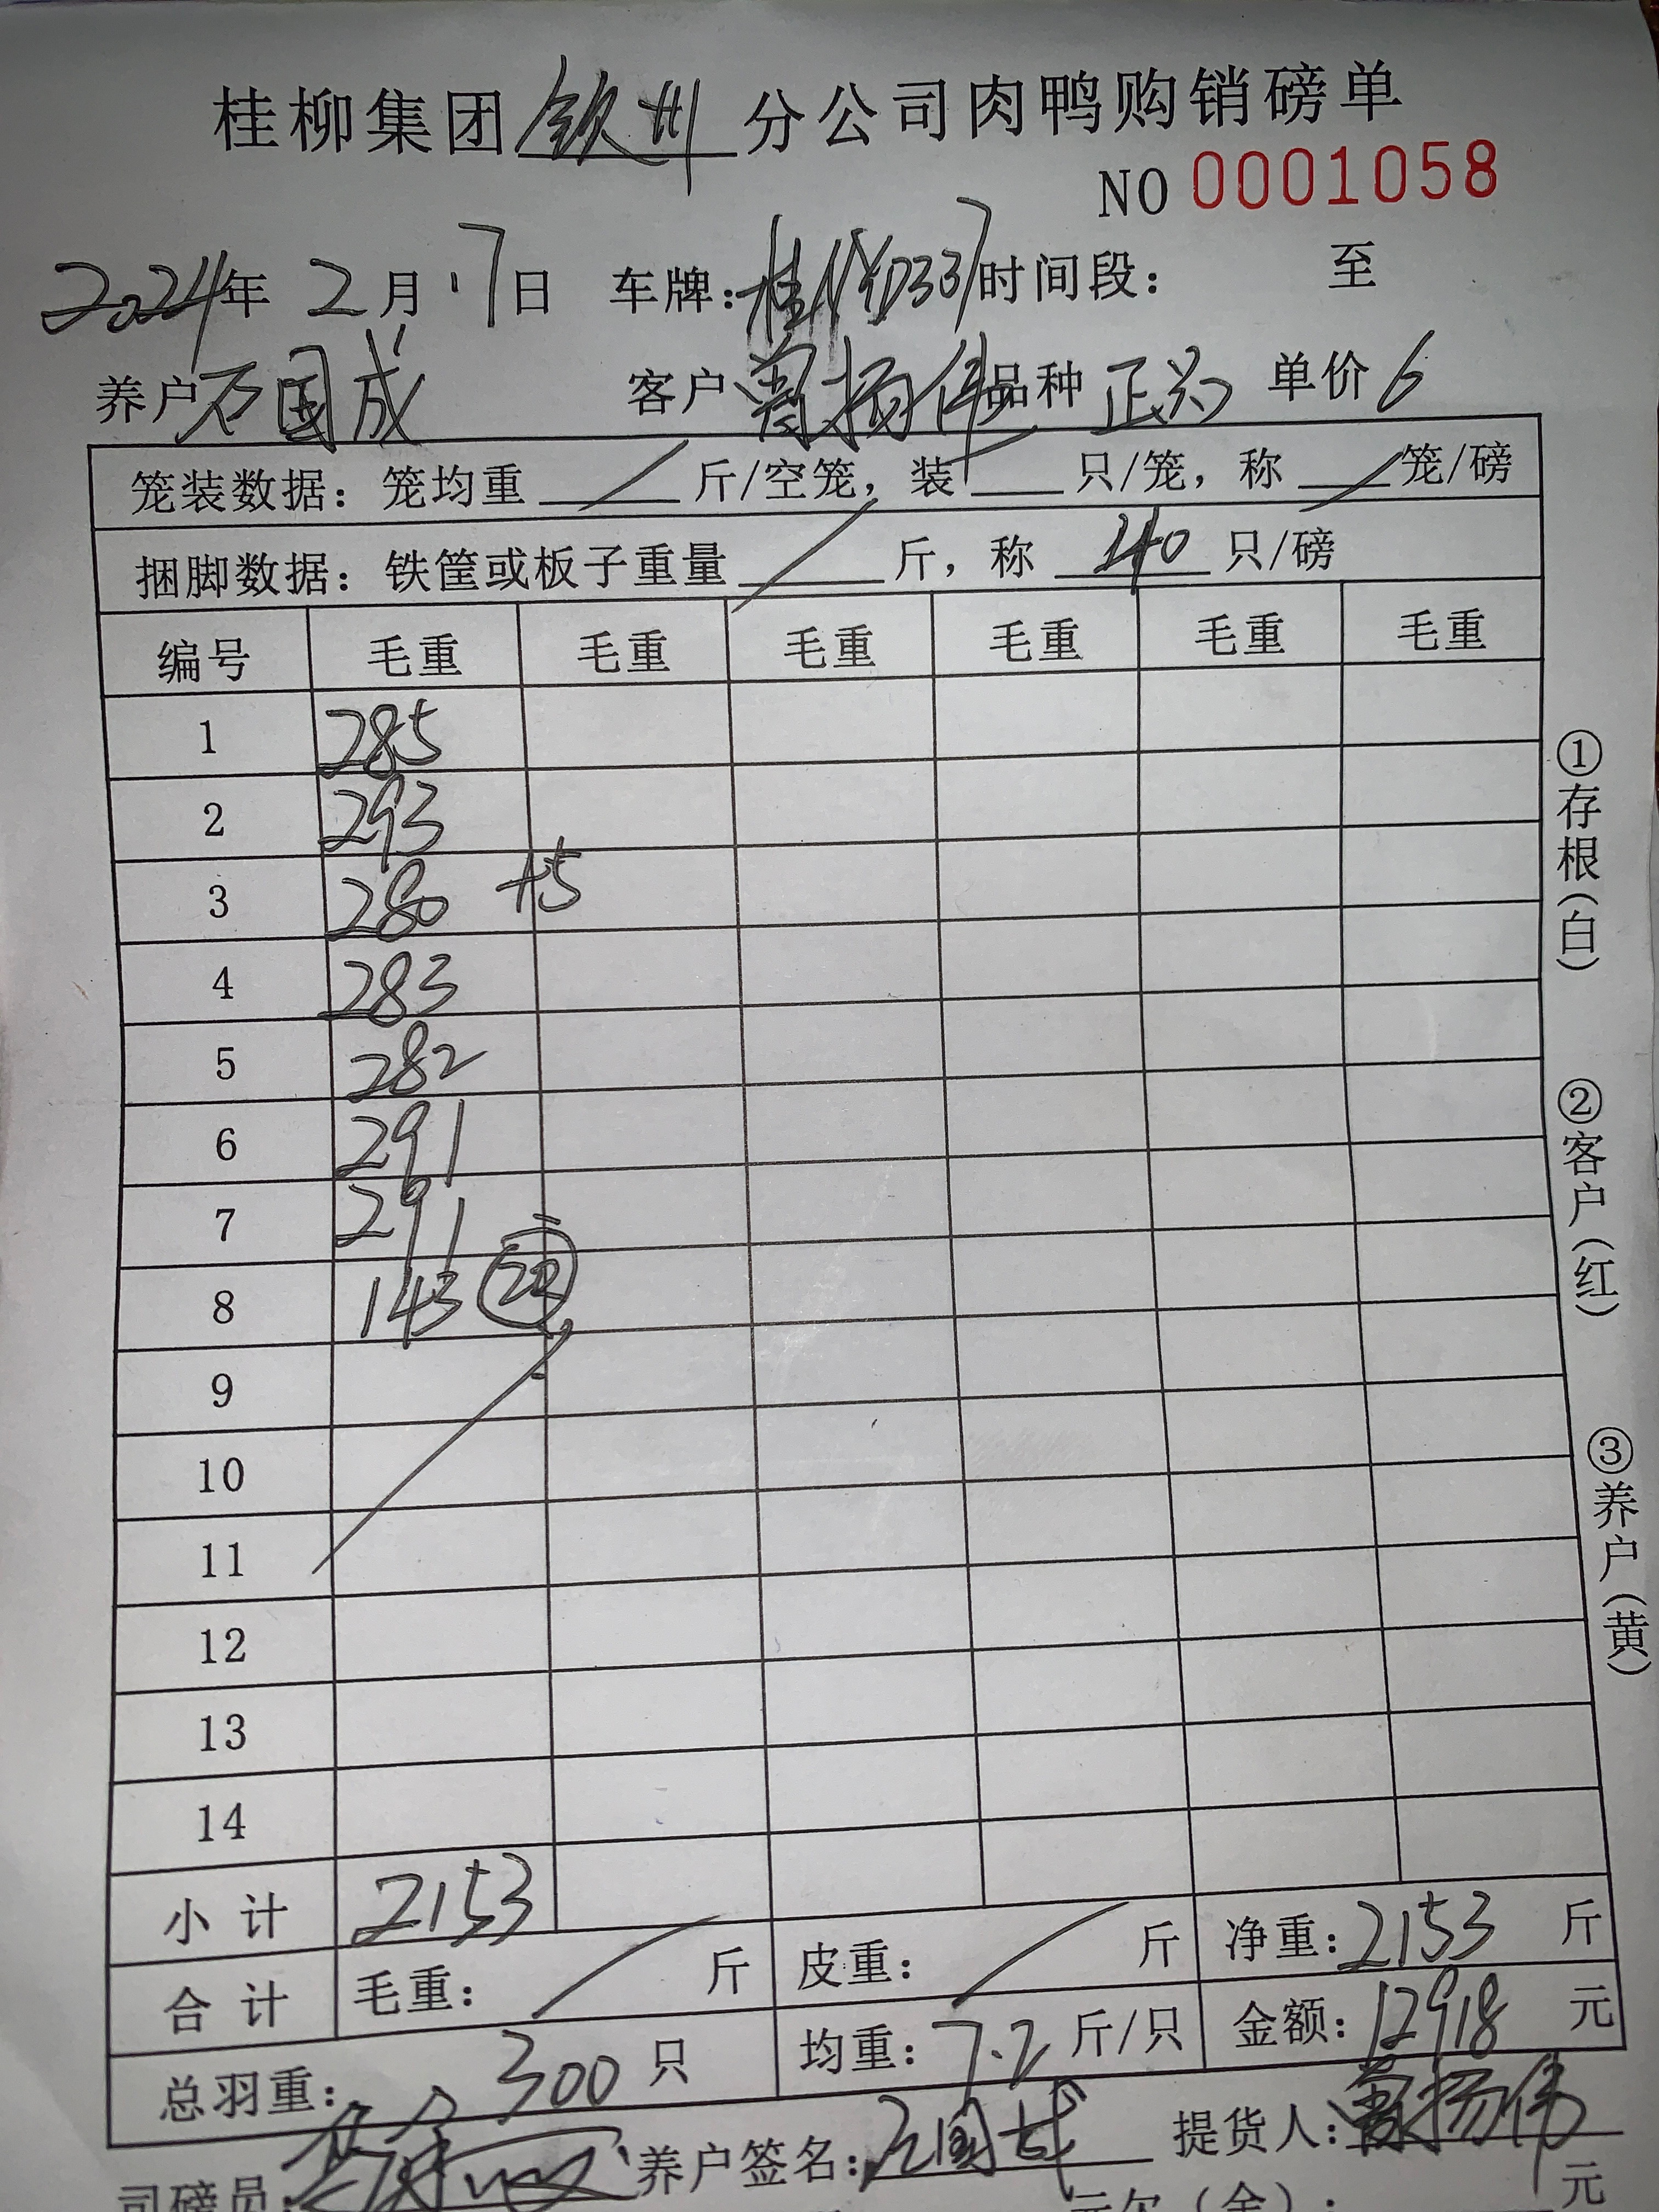 桂柳集团钦州分公司肉鸭购销磅单
NO 0001058
2024年 2月 17日 车牌:桂 D337 时间段: 至
养户 国成 客户 曾扬伟 品种 正 单价 6
笼装数据: 笼均重 / 斤/空笼, 装 / 只/笼, 称 / 笼/磅
捆脚数据: 铁筐或板子重量 / 斤, 称 40 只/磅
编号 毛重 毛重 毛重 毛重 毛重 毛重
1 285
2 293
3 280 +5
4 283
5 282
6 291
7 291
8 143 20
9
10
11
12
13
14
小计 2153
合计 毛重: / 斤 皮重: / 斤 净重: 2153 斤
总羽重: 300 只 均重: 7.2 斤/只 金额: 12918 元
司磅员: 养户签名: 国成 提货人: 曾扬伟
元欠(余): 元
①存根(白)
②客户(红)
③养户(黄)